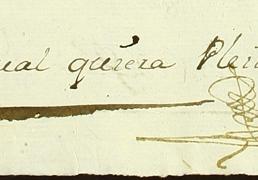 ual quiera Plei